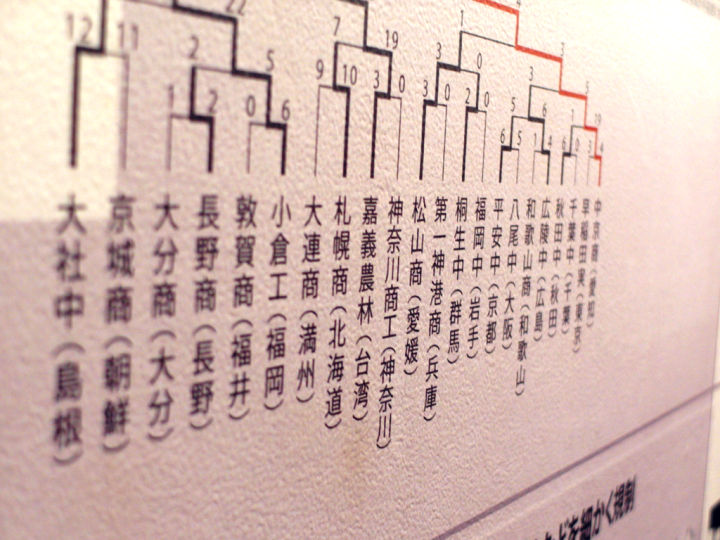 大社中（島根）
京城商（朝鮮）
大分商（大分）
長野商（長野）
敦賀商（福井）
小倉工（福岡）
大連商（満州）
札幌商（北海道）
嘉義農林（台湾）
神奈川商工（神奈川）
松山商（愛媛）
第一神港商（兵庫）
桐生中（群馬）
福岡中（岩手）
平安中（京都）
八尾中（大阪）
和歌山商（和歌山）
広陵中（広島）
秋田中（秋田）
千葉中（千葉）
早稲田実（東京）
中京商（愛知）
12 11
22
2 5
1 2 0 6
7 19
9 10 3 0
1
3 0
3 0 2 0
4
3
3 5
5 6 1 19
6 5 1 4 6 0 3 4
を細かく規制